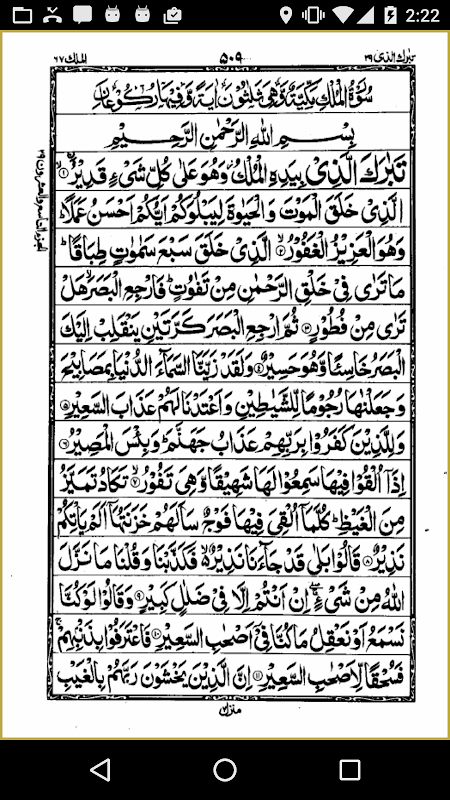 2:22
تبارك الذی ۲۹
۵۰۹
الملك ۶۷
سُوْرَةُ الْمُلْكِ مَكِّيَّةٌ وَّهِيَ ثَلٰثُوْنَ اٰيَةً وَّفِيْهَا رُكُوْعَانِ
بِسْمِ اللّٰهِ الرَّحْمٰنِ الرَّحِيْمِ
تَبٰرَكَ الَّذِيْ بِيَدِهِ الْمُلْكُ ؗ وَهُوَ عَلٰى كُلِّ شَيْءٍ قَدِيْرُ ۙ﴿۱﴾
الَّذِيْ خَلَقَ الْمَوْتَ وَالْحَيٰوةَ لِيَبْلُوَكُمْ اَيُّكُمْ اَحْسَنُ عَمَلًا ؕ
وَهُوَ الْعَزِيْزُ الْغَفُوْرُ ۙ﴿۲﴾ الَّذِيْ خَلَقَ سَبْعَ سَمٰوٰتٍ طِبَاقًا ؕ
مَا تَرٰى فِيْ خَلْقِ الرَّحْمٰنِ مِنْ تَفٰوُتٍ ؕ فَارْجِعِ الْبَصَرَ ۙ هَلْ
تَرٰى مِنْ فُطُوْرٍ ﴿۳﴾ ثُمَّ ارْجِعِ الْبَصَرَ كَرَّتَيْنِ يَنْقَلِبْ اِلَيْكَ
الْبَصَرُ خَاسِئًا وَّهُوَ حَسِيْرٌ ﴿۴﴾ وَلَقَدْ زَيَّنَّا السَّمَآءَ الدُّنْيَا بِمَصَابِيْحَ
وَجَعَلْنٰهَا رُجُوْمًا لِّلشَّيٰطِيْنِ وَاَعْتَدْنَا لَهُمْ عَذَابَ السَّعِيْرِ ﴿۵﴾
وَلِلَّذِيْنَ كَفَرُوْا بِرَبِّهِمْ عَذَابُ جَهَنَّمَ ؕ وَبِئْسَ الْمَصِيْرُ ﴿۶﴾
اِذَآ اُلْقُوْا فِيْهَا سَمِعُوْا لَهَا شَهِيْقًا وَّهِيَ تَفُوْرُ ۙ﴿۷﴾ تَكَادُ تَمَيَّزُ
مِنَ الْغَيْظِ ؕ كُلَّمَآ اُلْقِيَ فِيْهَا فَوْجٌ سَاَلَهُمْ خَزَنَتُهَآ اَلَمْ يَاْتِكُمْ
نَذِيْرٌ ﴿۸﴾ قَالُوْا بَلٰى قَدْ جَآءَنَا نَذِيْرٌ ۙ۬ فَكَذَّبْنَا وَقُلْنَا مَا نَزَّلَ
اللّٰهُ مِنْ شَيْءٍ ۖۚ اِنْ اَنْتُمْ اِلَّا فِيْ ضَلٰلٍ كَبِيْرٍ ﴿۹﴾ وَقَالُوْا لَوْ كُنَّا
نَسْمَعُ اَوْ نَعْقِلُ مَا كُنَّا فِيْٓ اَصْحٰبِ السَّعِيْرِ ﴿۱۰﴾ فَاعْتَرَفُوْا بِذَنْۢبِهِمْ ۚ
فَسُحْقًا لِّاَصْحٰبِ السَّعِيْرِ ﴿۱۱﴾ اِنَّ الَّذِيْنَ يَخْشَوْنَ رَبَّهُمْ بِالْغَيْبِ
منزل